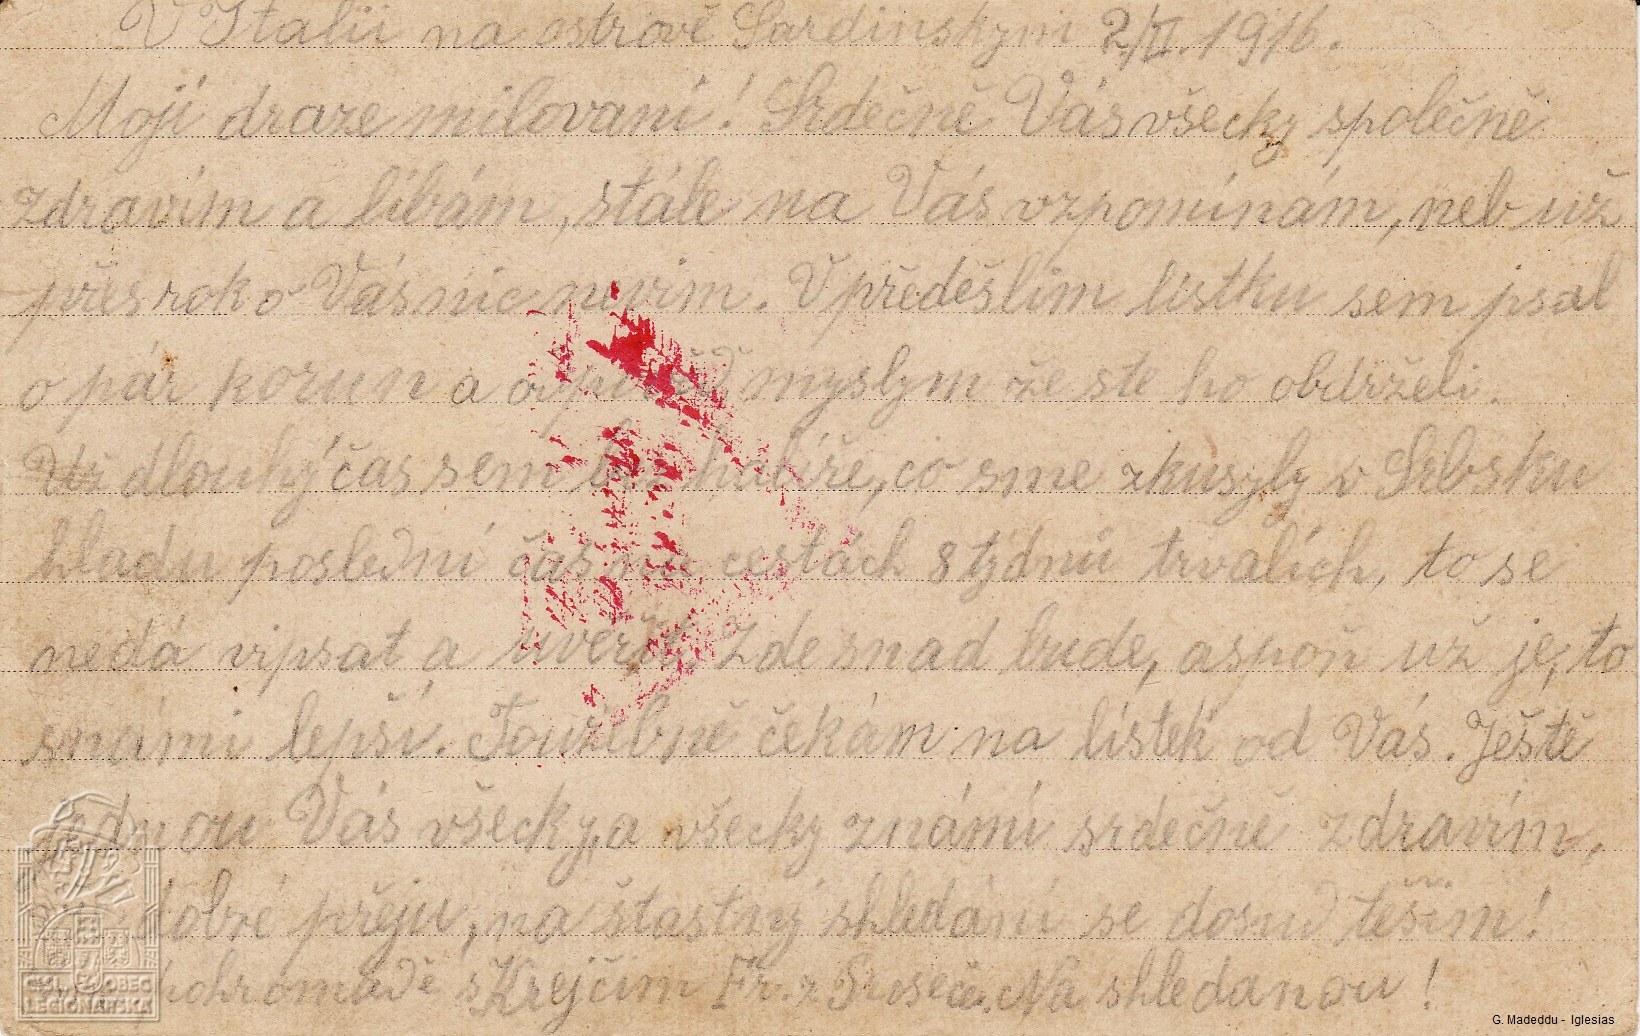 V Italii na ostrově Sardinskym 2/II. 1916.
Moji draze milovaní! Srdečně Vás všecky společně
zdravím a líbám, stále na Vás vzpomínám, neb už
přes rok o Vás nic nevim. V předěšlim lístku sem psal
o pár korun a myslym že ste ho obdrželi.
dlouhý čas sem bez halíře, co sme zkusyly v Srbsku
hladu poslední čas na cestách 8 týdnů trvalích, to se
nedá vipsat a uvěřit. Zde snad bude, aspoň už je, to
snámi lepší. Toužebně čekám na lístek od Vás. Ještě
jednou Vás všecky, a všecky známí srdečně zdravím,
dobré přeju, na štastný shledání se dosud těším!
pohromadě s Krejčím Fr. z Proseče. Na shledanou!
ČSL. OBEC
LEGIONÁŘSKÁ
G. Madeddu - Iglesias